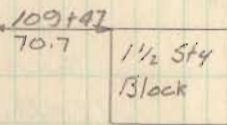 109+47
70.7
1 1/2 Sty
Block